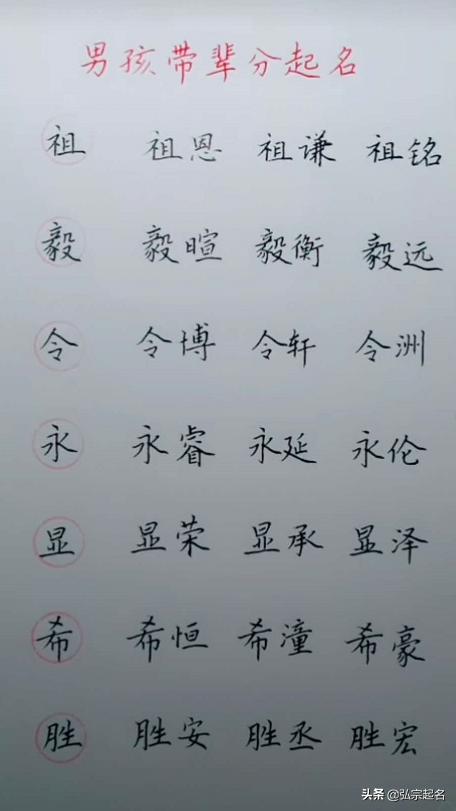 男孩带辈分起名
祖 祖恩 祖谦 祖铭
毅 毅暄 毅衡 毅远
令 令博 令轩 令洲
永 永睿 永延 永伦
显 显荣 显承 显泽
希 希恒 希潼 希豪
胜 胜安 胜丞 胜宏
头条 @弘宗起名